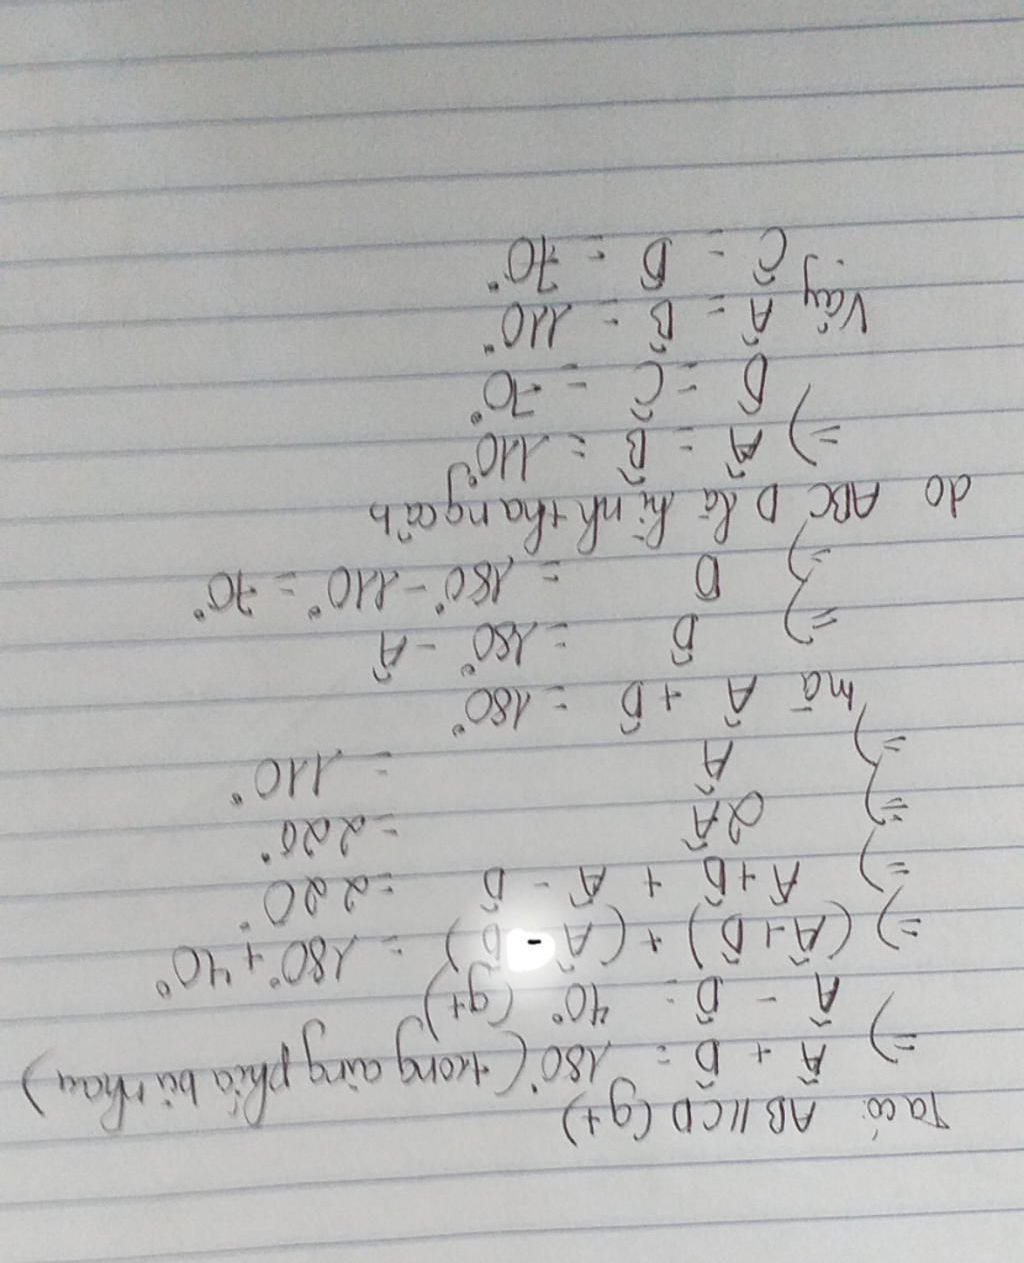 Ta có: AB//CD (gt)
=> Â + D̂ = 180° (trong cùng phía bù nhau)
Â - D̂ = 40° (gt)
=> (Â+D̂) + (Â - D̂) = 180° + 40°
=> Â+D̂ + Â - D̂ = 220°
=> 2Â = 220°
=> Â = 110°
mà Â + D̂ = 180°
=> D̂ = 180° - Â
=> D = 180° - 110° = 70°
do ABCD là hình thang cân
=> Â = B̂ = 110°
D̂ = Ĉ = 70°
Vậy Â = B̂ = 110°
Ĉ = D̂ = 70°